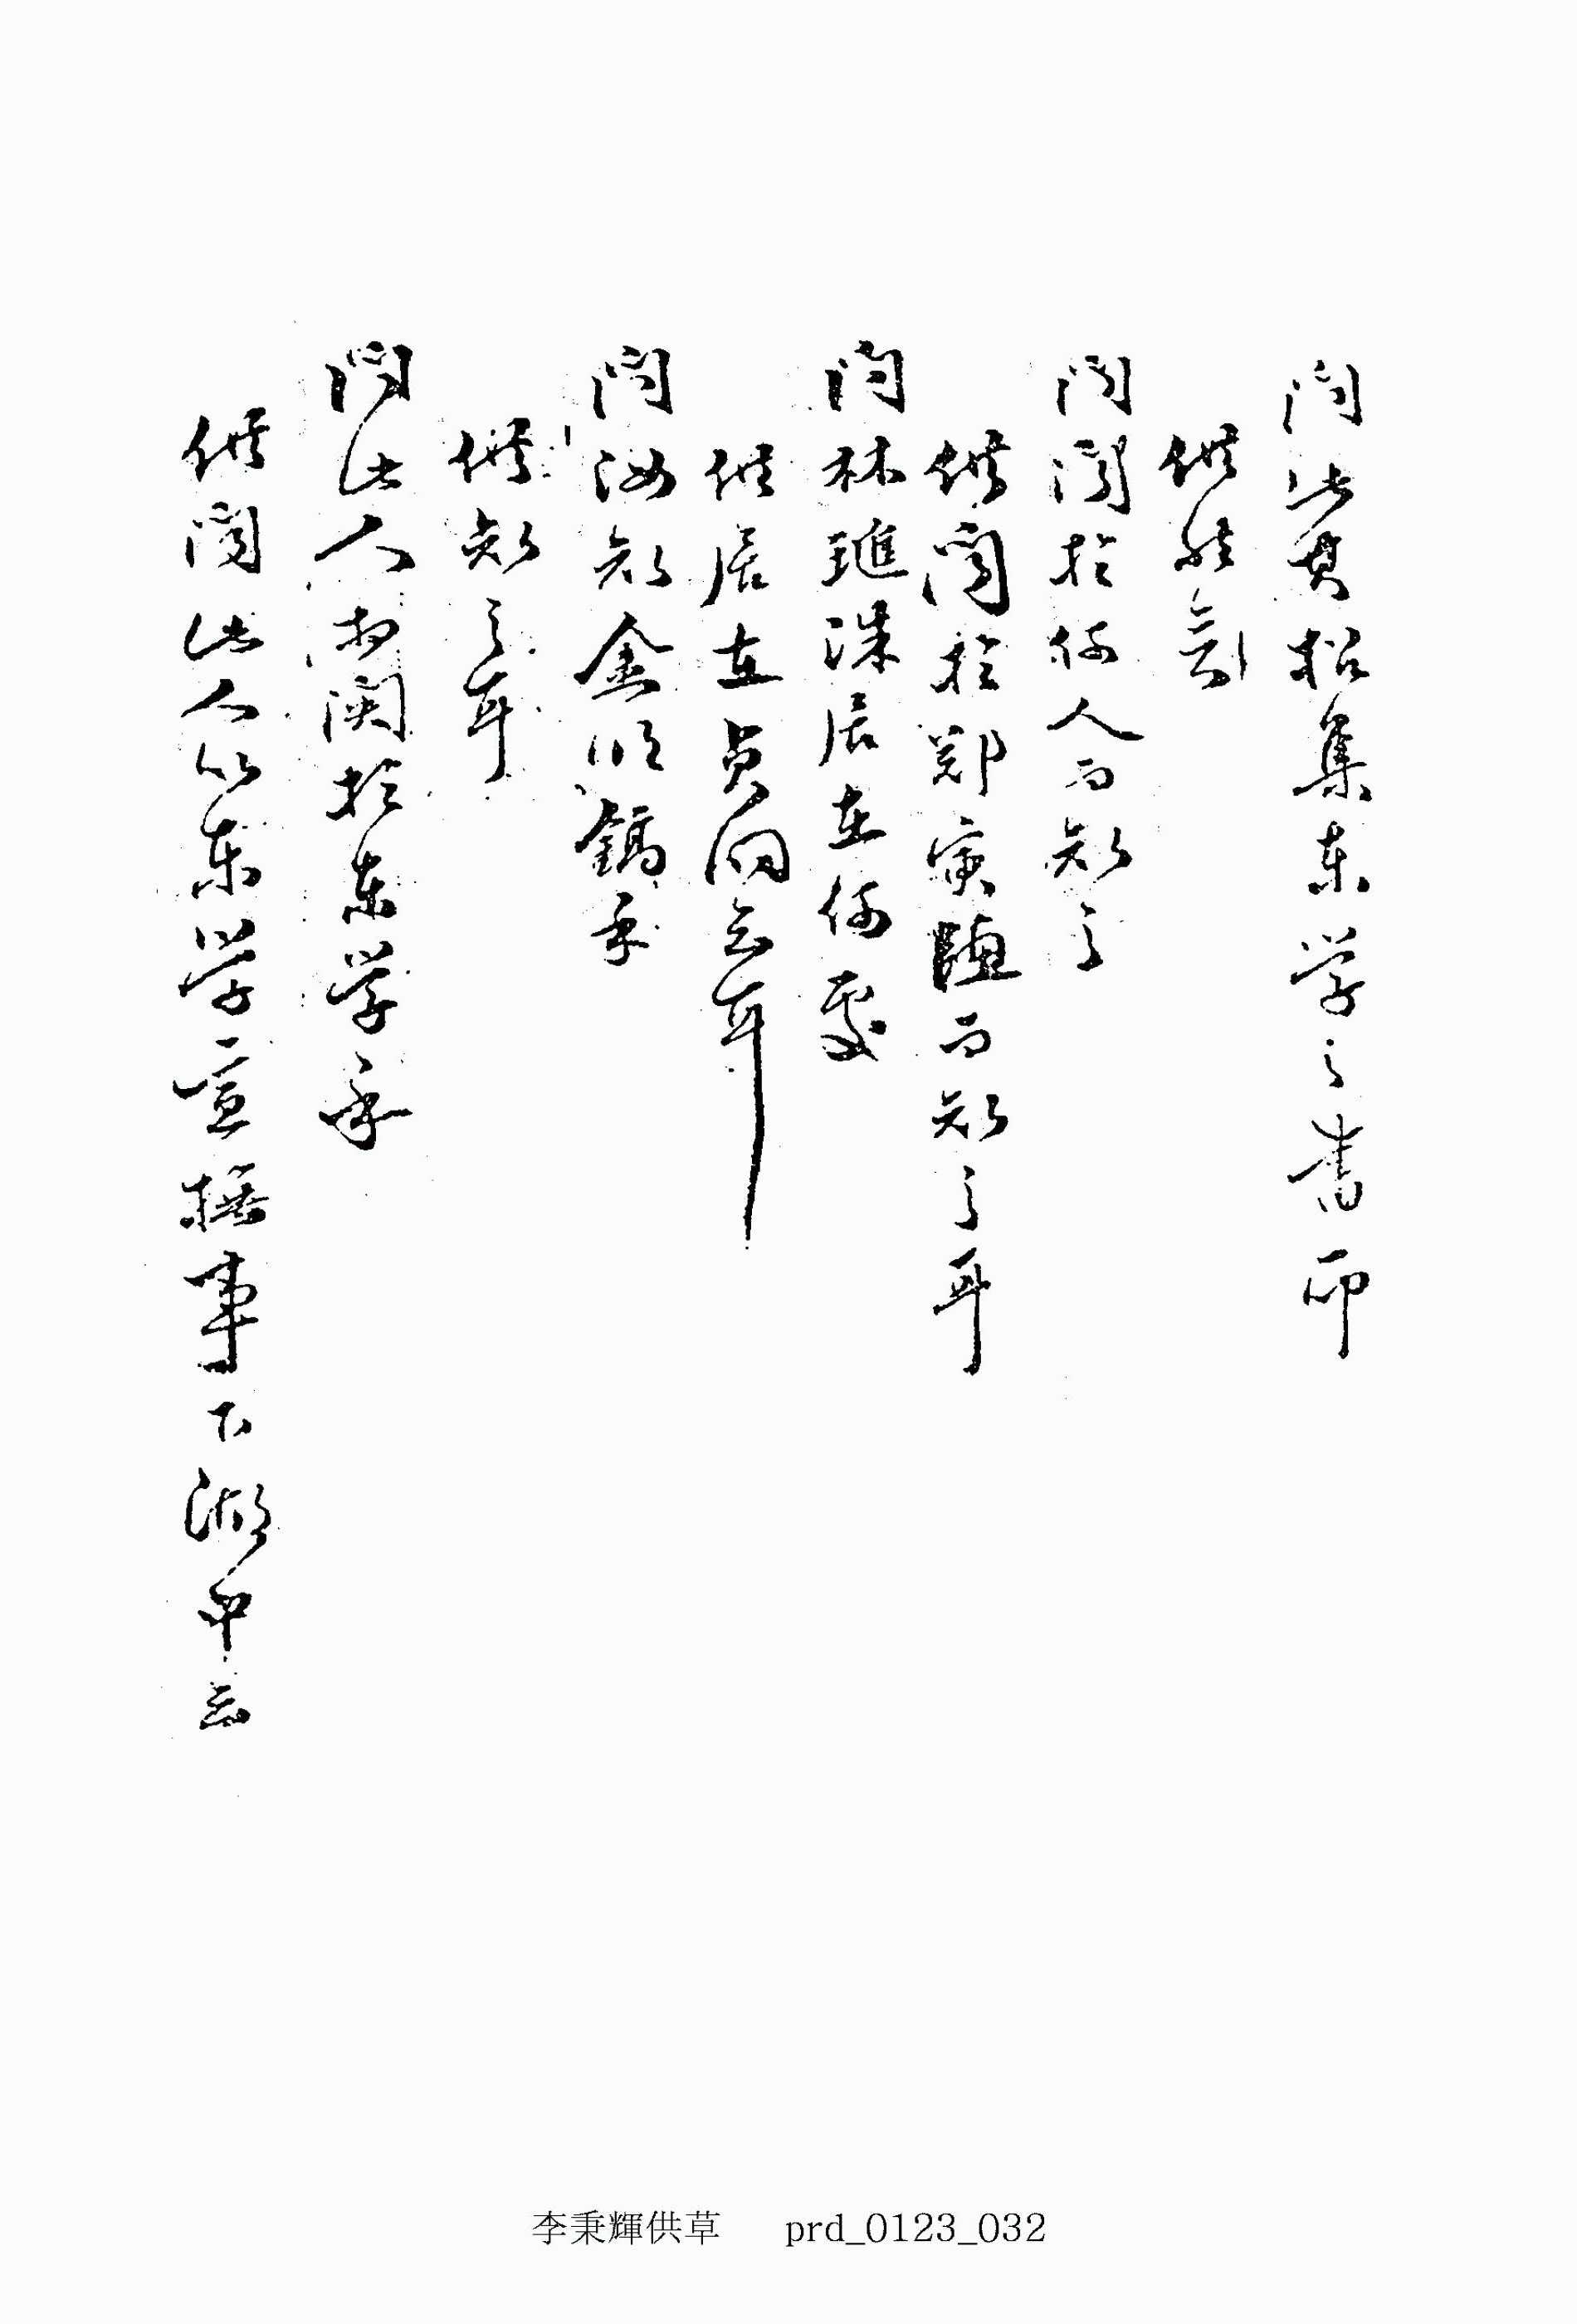 問此冥招集東学之書耶
供然矣
問聞於何人而知之
供聞於鄭寅悳而知之耳
問林璡洙居在何處
供居在貞洞云耳
問汝知金順鎬乎
供知之耳
問此人相関於東学乎
供聞此人以東学宣撫事下湖中云
李秉輝供草 prd_0123_032